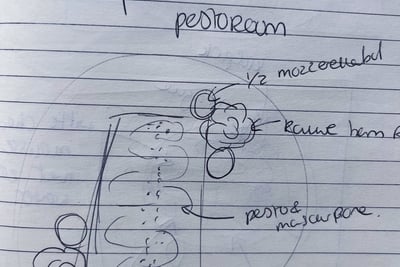 pestoroom
1/2 mozzerellabol
Rauwe ham R
pesto &
mascarpone.